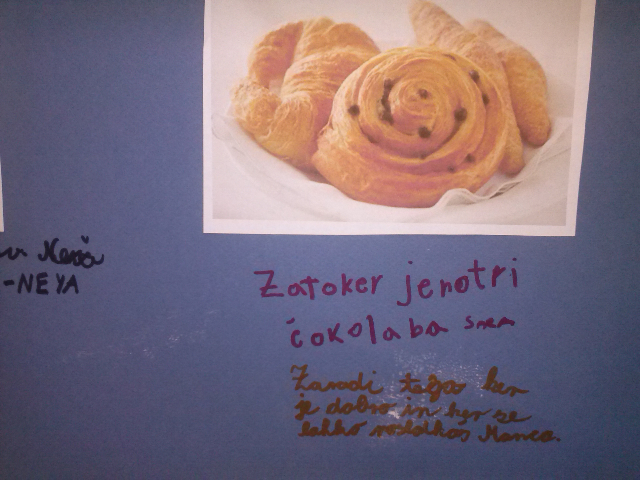 Nevă
-NEYA
Zatoker jenotri
čokolaba SARA
Zaradi tega ker
je dobro in ker se
lahko posladkaš Manca.